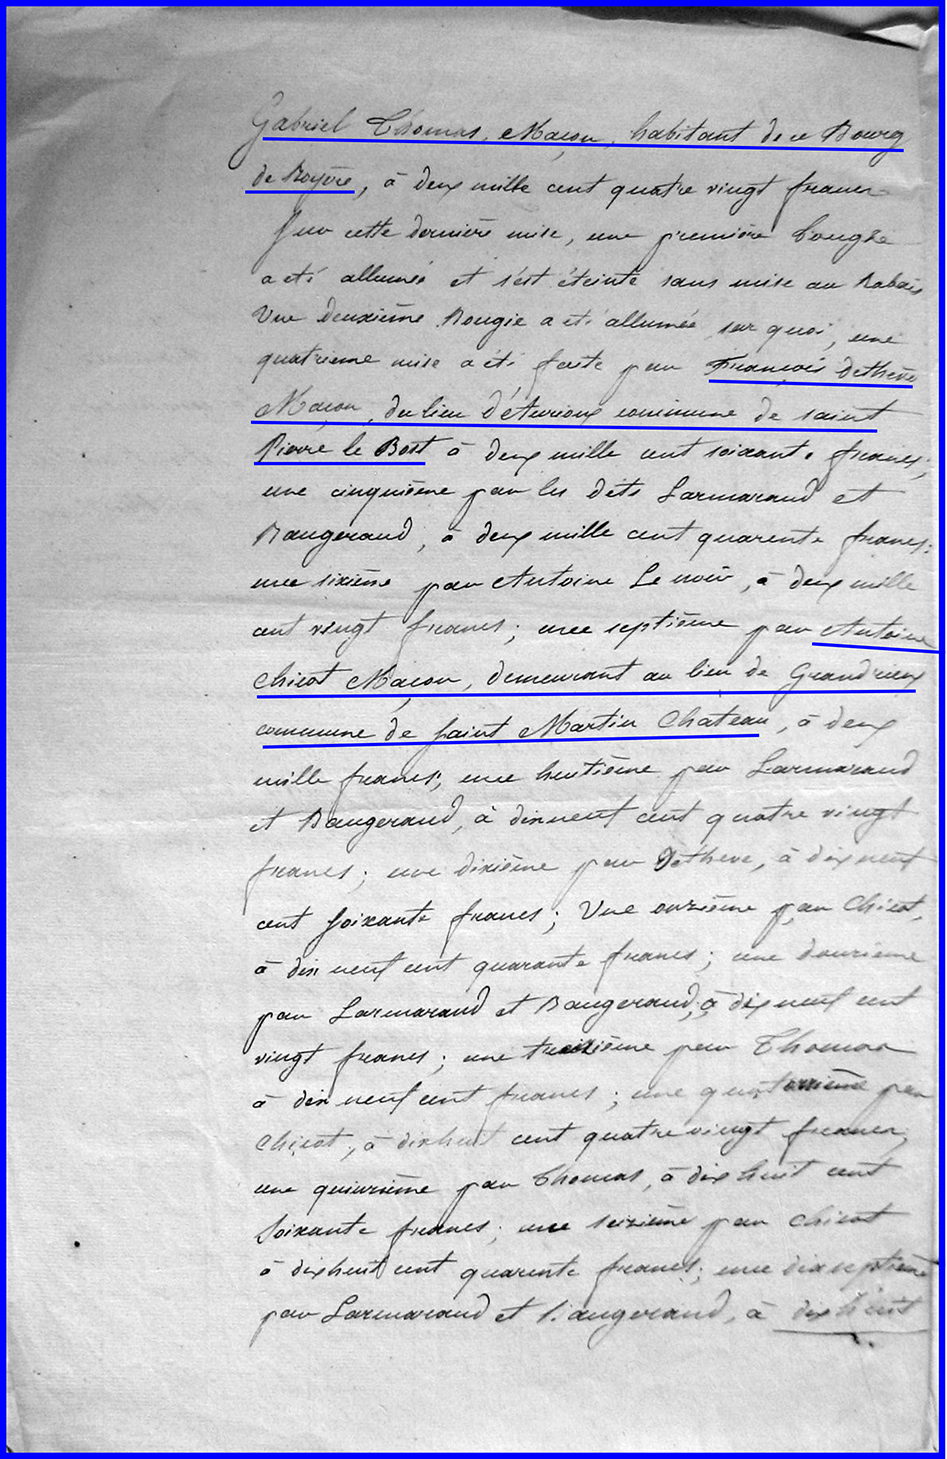 Gabriel Thomas, Maçon, habitant de ce Bourg
de Royère, à deux mille cent quatre vingt francs
Sur cette dernière mise, une première bougie
a eté allumée et s'est éteinte sans mise au Rabais
Une deuxième Bougie a eté allumée sur quoi, une
quatrieme mise a été faite par François dethève
Maçon, du lieu d'Aurioux commune de saint
Pierre le Bost à deux mille cent soixante francs;
une cinquième par les dits Larmaraud et
Baugeraud, à deux mille cent quarente francs:
une sixième par Antoine Le noir, à deux mille
cent vingt francs; une septième par Antoine
Chicot Maçon, demeurant au lieu de Grandrieux
commune de Saint Martin Chateau, à deux
mille francs; une huitième par Larmaraud
et Baugeraud, à dix neuf cent quatre vingt
francs; une dixième par Detheve, à dix neuf
cent soixante francs; Une onzième par Chicot,
à dix neuf cent quarante francs; une douzieme
par Larmaraud et Baugeraud, à dix neuf cent
vingt francs; une treizième par Thomas
à dix neuf cent francs; une quatorzième par
Chicot, à dixhuit cent quatre vingt francs,
une quinzième par Thomas, à dix huit cent
soixante francs; une seizième par Chicot
à dixhuit cent quarente francs; une dixseptième
par Larmaraud et Baugeraud, à dix huit